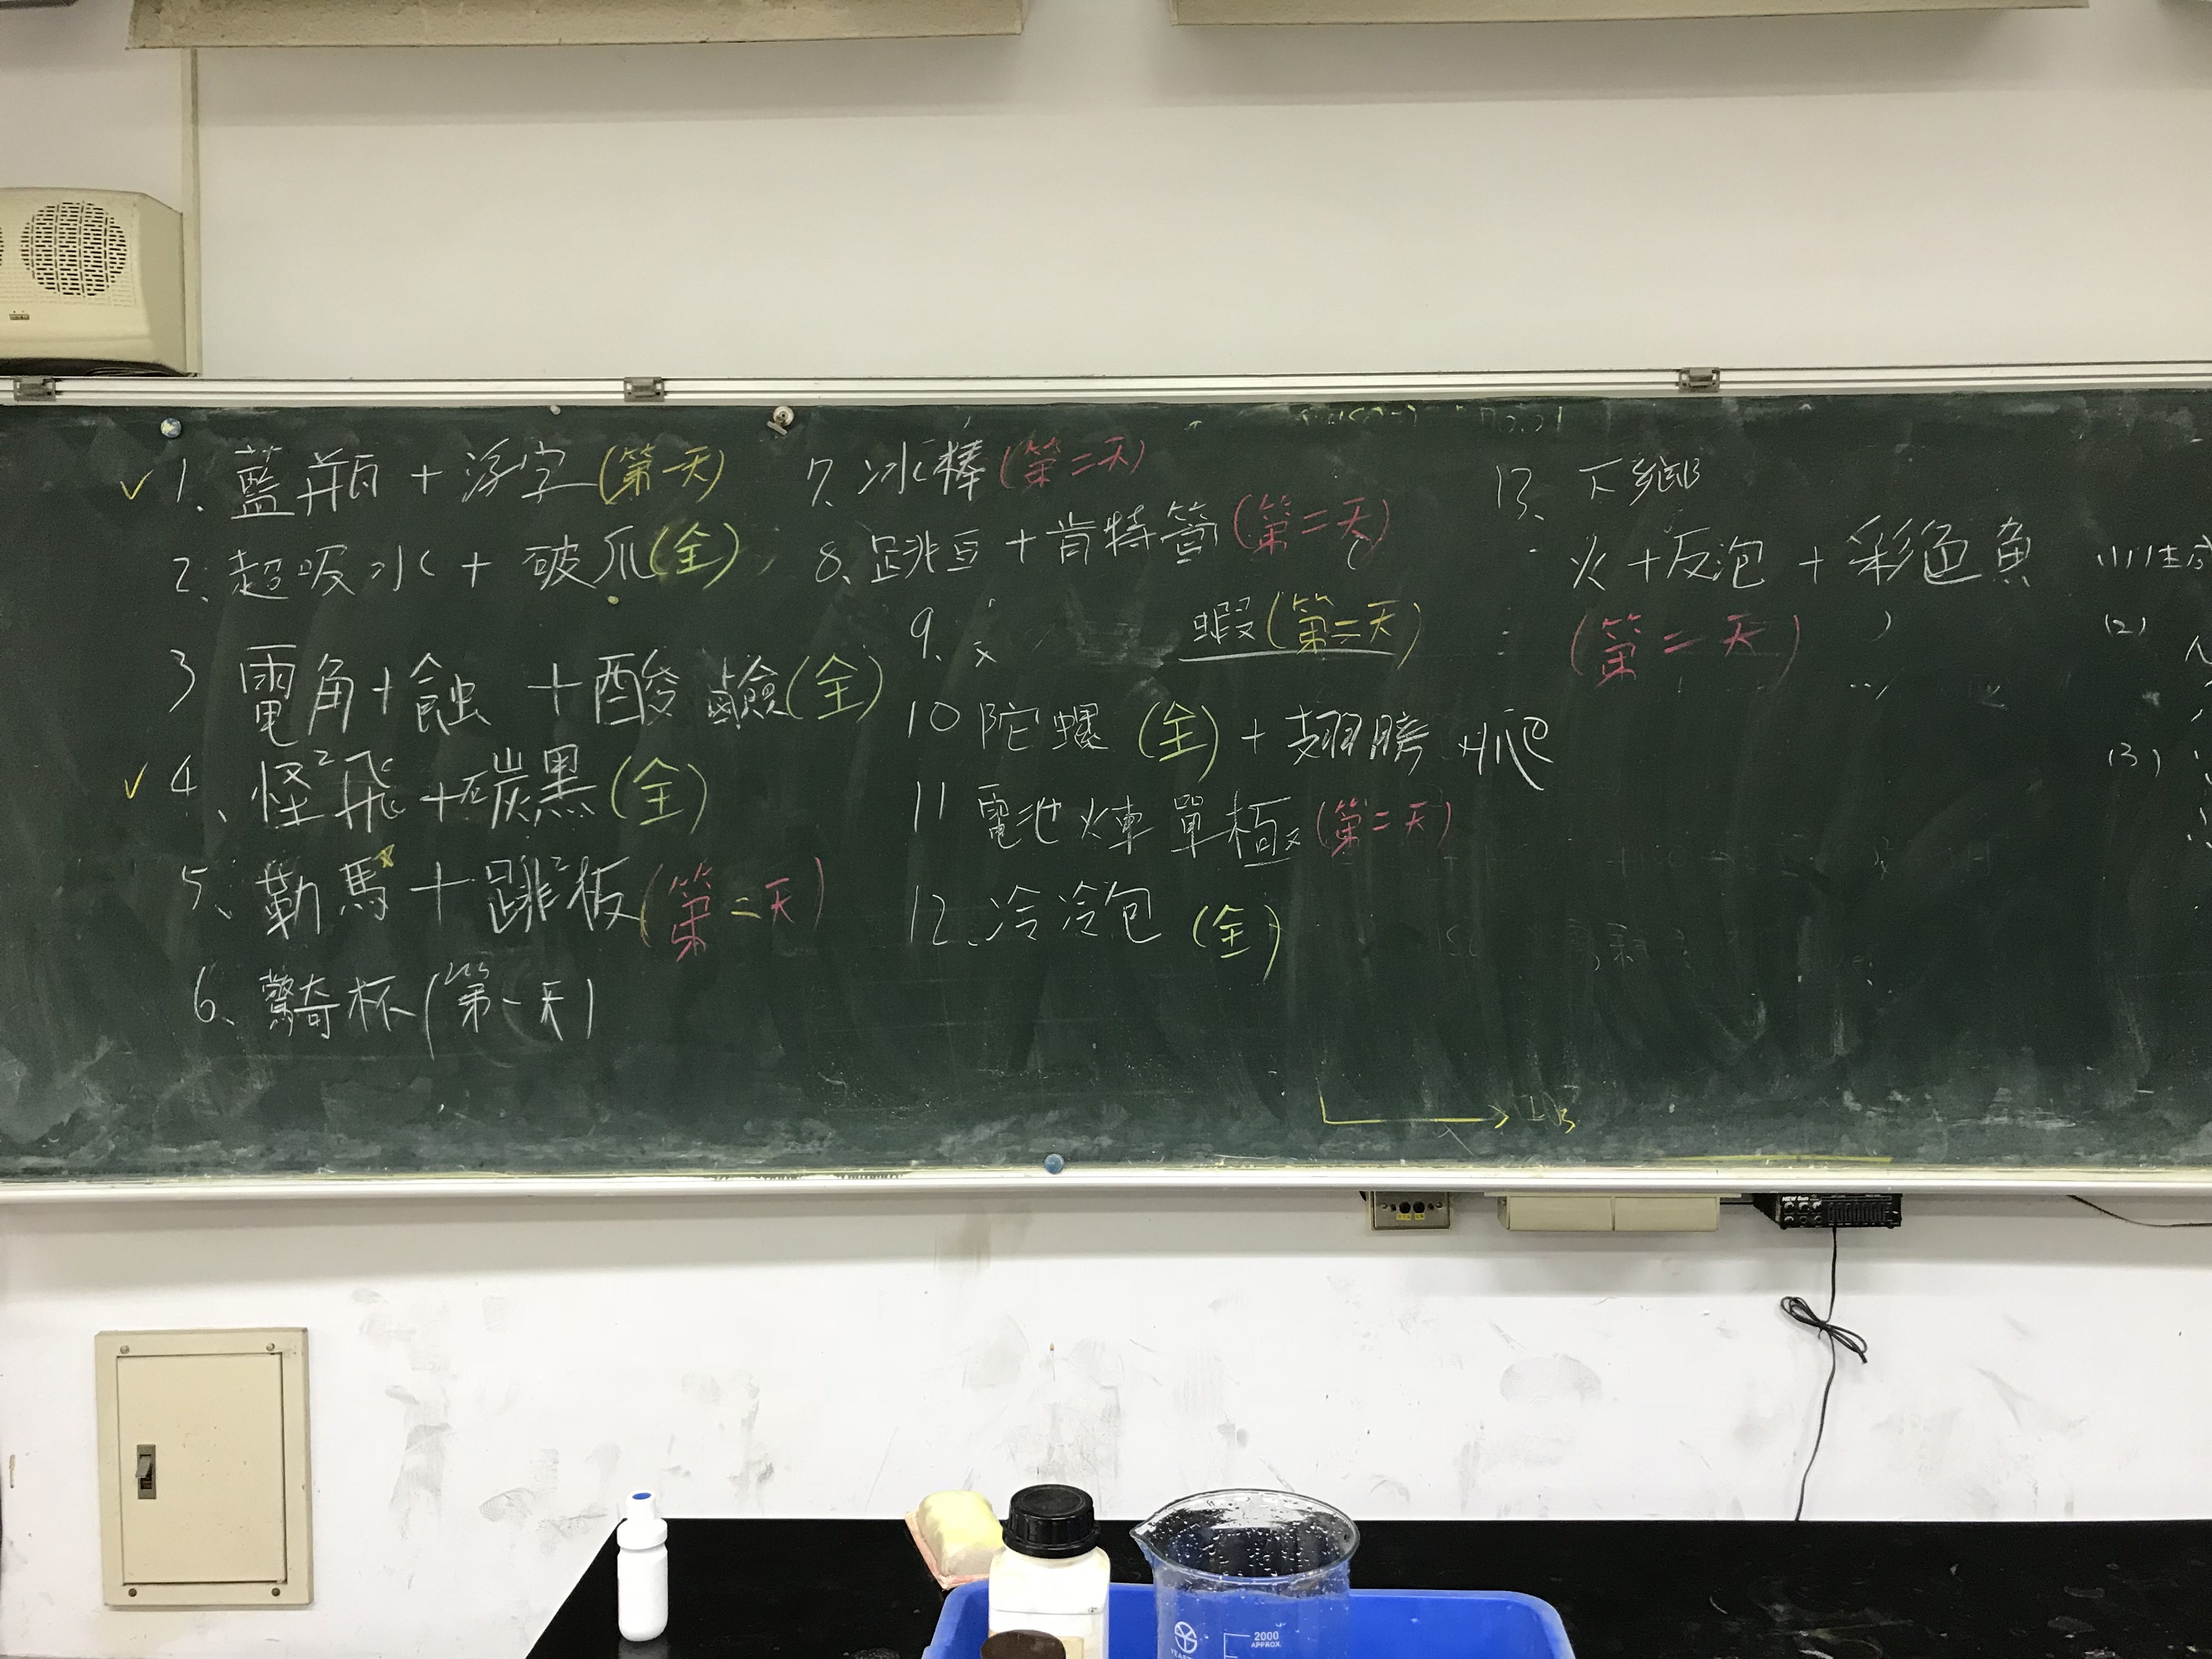 ✓ 1. 藍瓶 + 浮字 (第一天)
2. 超吸水 + 破爪 (全)
3 電角 + 蝕 + 酸鹼 (全)
✓ 4、怪²飛 + 碳黑 (全)
5、勒馬 + 跳²板 (第二天)
6、驚奇杯 (第一天)
7. 冰棒 (第二天)
8、跳豆 + 肯特管 (第二天)
9、蝦 (第二天)
10 陀螺 (全) + 翅膀 爬
11 電池火車 單極 (第二天)
12、冷冷包 (全)
13、下鄉
火 + 反泡 + 彩色魚
(第二天)
(1)
(2)
(3)
2000
APPROX.